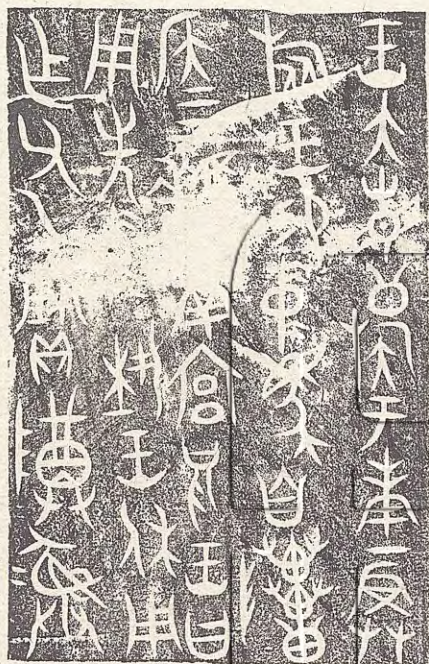 王大省公族于庚振旅
王易中馬自
侯四南宮兄王曰
用先中王休用
乍父乙寶尊彝